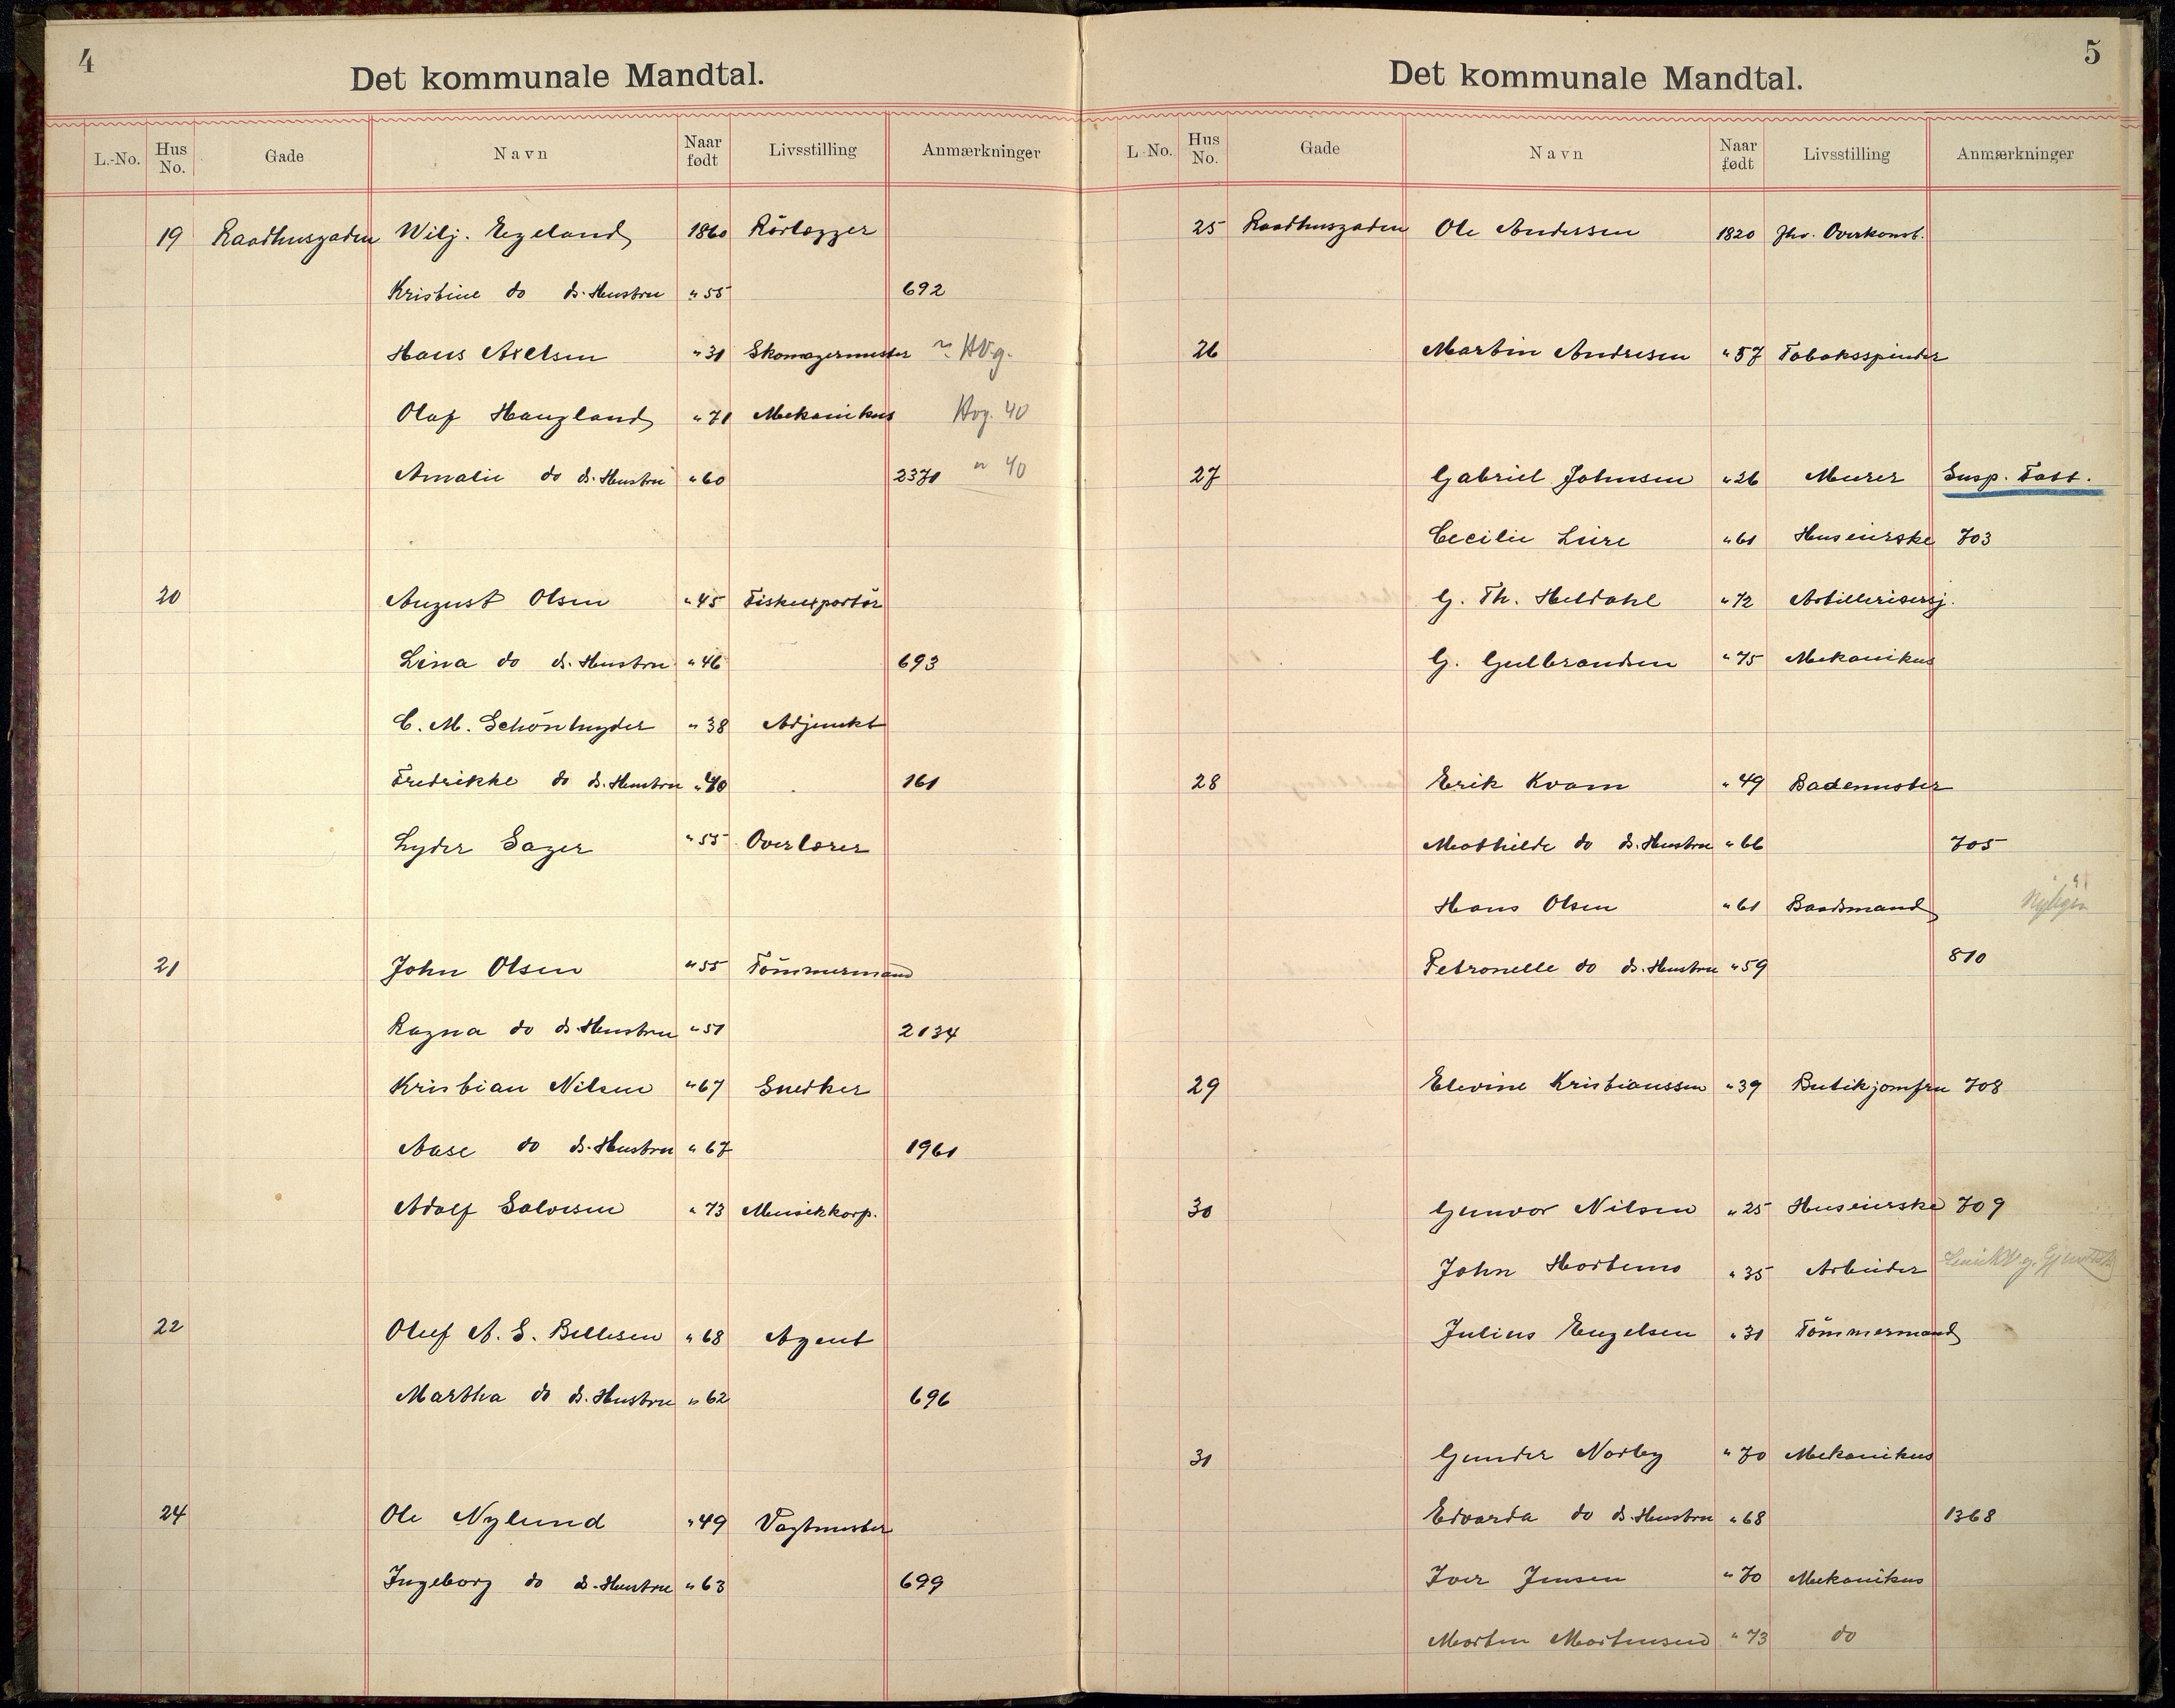 4
Det kommunale Mandtal.
L.-No. Hus No. Gade Navn Naar født Livsstilling Anmærkninger
19 Raadhusgaden Wilj. Egeland 1860 Rörlægger
Kristine do ds. Hustru " 55 692
Hans Axelsen " 31 Skomagermester
Olaf Haugland " 71 Mekanikus Hvg. 40
Amalie do ds. Hustru " 60 2371 " 40
20 August Olsen " 45 Fiskexportör
Lina do ds. Hustru " 46 693
C. M. Schönhuyder " 38 Adjunkt
Fredrikke do ds. Hustru " 40 161
Lyder Sager " 55 Overlærer
21 John Olsen " 55 Tömmermand
Ragna do ds. Hustru " 51 2134
Kristian Nilsen " 67 Snedker
Aase do ds. Hustru " 67 1961
Adolf Salvesen " 73 Musikkorp.
22 Oluf A. S. Bellesen " 68 Agent
Martha do ds. Hustru " 62 696
24 Ole Nylund " 49 Vagtmester
Ingeborg do ds. Hustru " 63 699
5
Det kommunale Mandtal.
L.-No. Hus No. Gade Navn Naar født Livsstilling Anmærkninger
25 Raadhusgaden Ole Andersen 1820 fhv. Overkonst.
26 Martin Andresen " 57 Tobaksspinder
27 Gabriel Johnsen " 26 Murer Susp. Fatt.
Cecilie Liire " 61 Huseierske 703
G. Th. Heldahl " 72 Artillerisersj.
G. Gulbrandsen " 75 Mekanikus
28 Erik Kvam " 49 Bademester
Mathilde do ds. Hustru " 66 705
Hans Olsen " 61 Baadsmand
Petronelle do ds. Hustru " 59 810
29 Elevine Kristianssen " 39 Butikjomfru 708
30 Gunvor Nilsen " 25 Huseierske 709
John Hortemo " 35 Arbeider
Julius Engelsen " 31 Tömmermand
31 Gunder Norby " 70 Mekanikus
Edvarda do ds. Hustru " 68 1368
Iver Jensen " 70 Mekanikus
Morten Mortensen " 73 do